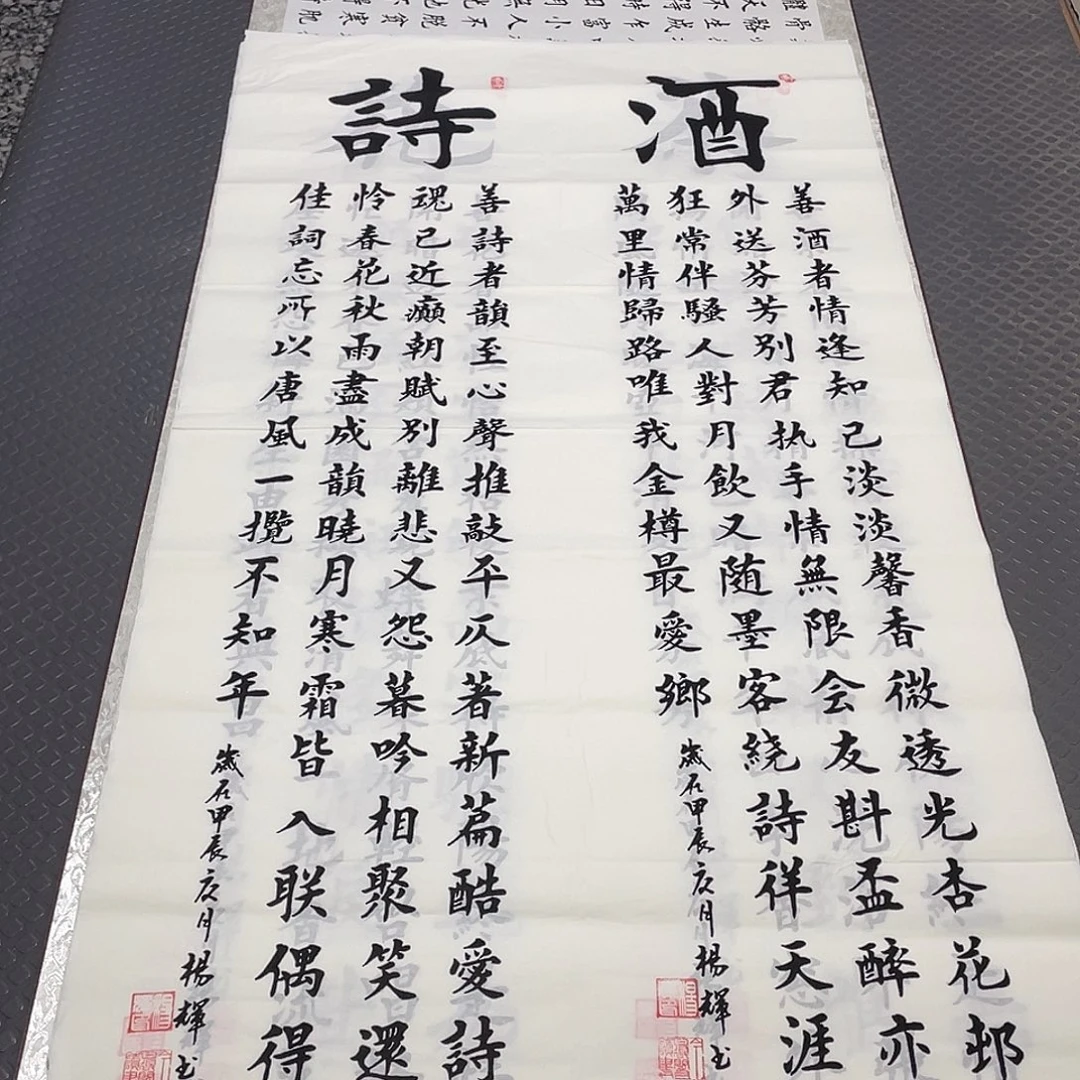 酒
善酒者情逢知己淡淡馨香微透光杏花邨
外送芬芳别君执手情無限会友斟盃醉亦
狂常伴騷人對月飲又随墨客绕詩徉天涯
萬里情歸路唯我金樽最愛鄉
歲在甲辰 月楊輝书
詩
善詩者韻至心聲推敲平仄著新篇酷愛詩
魂已近癲朝賦别離悲又怨暮吟相聚笑還
怜春花秋雨盡成韻曉月寒霜皆入联偶得
佳詞忘所以唐風一攬不知年
歲在甲辰 月楊輝书